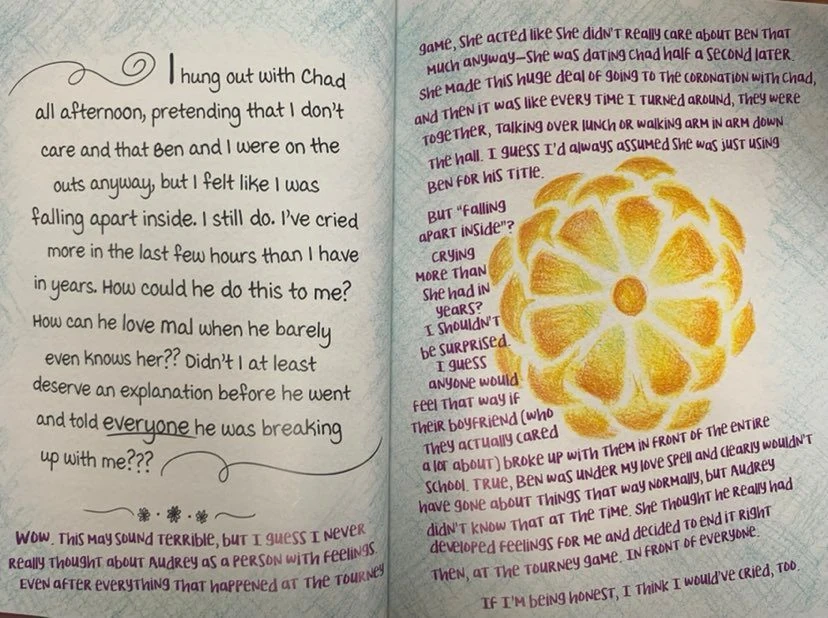 I hung out with Chad
all afternoon, pretending that I don't
care and that Ben and I were on the
outs anyway, but I felt like I was
falling apart inside. I still do. I've cried
more in the last few hours than I have
in years. How could he do this to me?
How can he love mal when he barely
even knows her?? Didn't I at least
deserve an explanation before he went
and told everyone he was breaking
up with me???
Wow. This may sound terrible, but I guess I never
really thought about Audrey as a person with feelings.
Even after everything that happened at the tourney
game, she acted like she didn't really care about Ben that
much anyway—she was dating Chad half a second later.
She made this huge deal of going to the coronation with Chad,
and then it was like every time I turned around, they were
together, talking over lunch or walking arm in arm down
the hall. I guess I'd always assumed she was just using
Ben for his title.
But "falling
apart inside"?
Crying
more than
she had in
years?
I shouldn't
be surprised.
I guess
anyone would
feel that way if
their boyfriend (who
they actually cared
a lot about) broke up with them in front of the entire
school. True, Ben was under my love spell and clearly wouldn't
have gone about things that way normally, but Audrey
didn't know that at the time. She thought he really had
developed feelings for me and decided to end it right
then, at the tourney game. In front of everyone.
If I'm being honest, I think I would've cried, too.